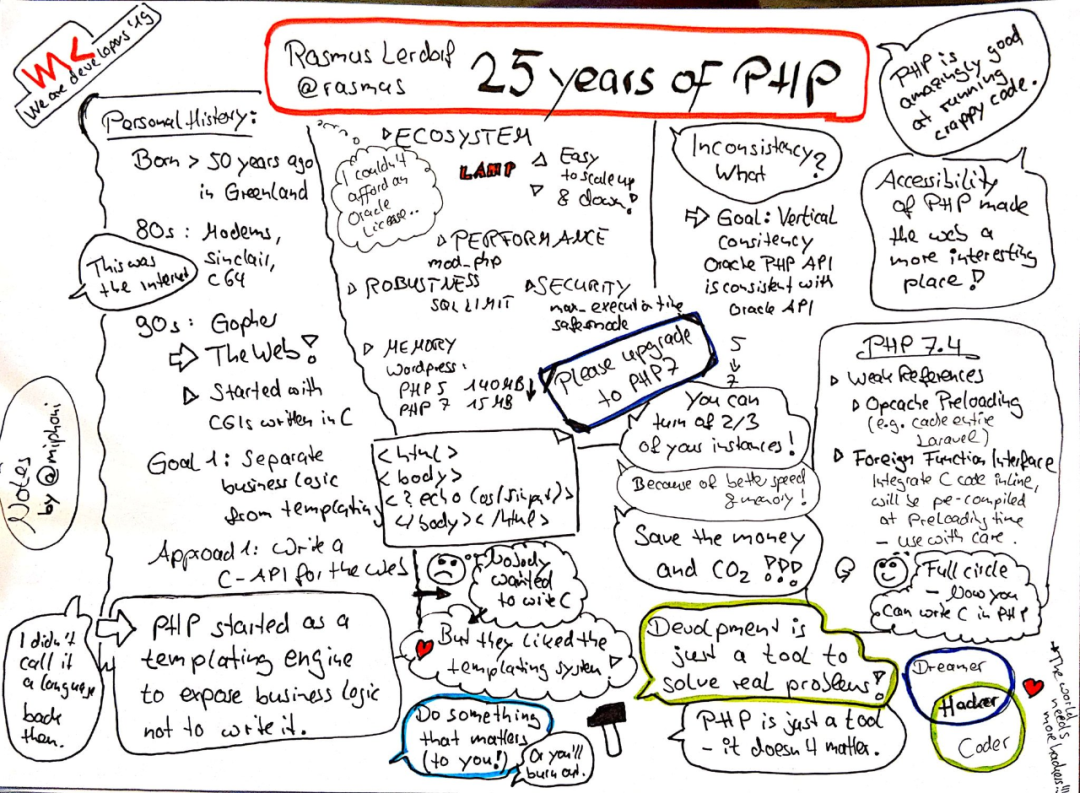 WK
We are developers '19
Rasmus Lerdorf
@rasmus
25 years of PHP
PHP is
amazingly good
at running
crappy code.
Personal History:
Born > 50 years ago
in Greenland
80s: Modems,
Sinclair,
C64
This was
the internet
90s: Gopher
The Web!
Started with
CGIs written in C
Goal 1: Separate
business logic
from templating
Approach 1: Write a
C-API for the Web
I didn't
call it
a language
back
then.
PHP started as a
templating engine
to expose business logic
not to write it.
Notes
by @miphoni
ECOSYSTEM
LAMP
Easy
to scale up
& down!
I couldn't
afford an
Oracle
License..
PERFORMANCE
mod_php
ROBUSTNESS
SQL LIMIT
SECURITY
max_execution time
safemode
MEMORY
Wordpress:
PHP 5 140MB
PHP 7 15MB
Please upgrade
to PHP7
<html>
<body>
<? echo (cos/sin/port)>
</body></html>
Nobody
wanted
to write C
But they liked the
templating system!
Do something
that matters
(to you!)
Or you'll
burn out.
Inconsistency?
What
Goal: Vertical
consitency
Oracle PHP API
is consistent with
Oracle API
5
7
You can
turn of 2/3
of your instances!
Because of better speed
& memory!
Save the money
and CO2 !!!
Devolpment is
just a tool to
solve real problems!
PHP is just a tool
- it doesn't matter.
Accessibility
of PHP made
the web a
more interesting
place!
PHP 7.4
Weak References
Opcache Preloading
(e.g. cache entire
Laravel)
Foreign Function Interface
Integrate C code inline,
will be pre-compiled
at Preloading time
- use with care.
Full circle
- Now you
can write C in PHP
Dreamer
Hacker
Coder
*The world
needs
more hackers!!!